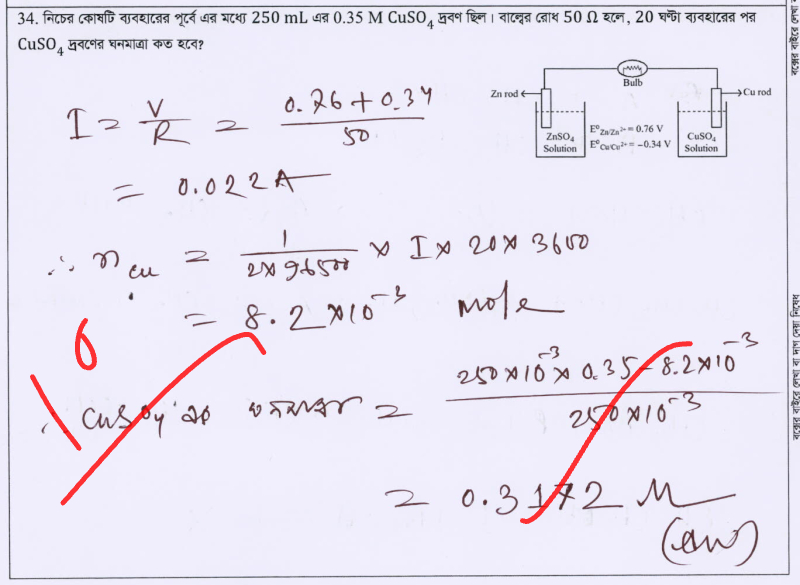 34. নিচের কোষটি ব্যবহারের পূর্বে এর মধ্যে 250 mL এর 0.35 M CuSO4 দ্রবণ ছিল। বাল্বের রোধ 50 Ω হলে, 20 ঘণ্টা ব্যবহারের পর
CuSO4 দ্রবণের ঘনমাত্রা কত হবে?
Bulb
Zn rod
Cu rod
ZnSO4 Solution
E°Zn/Zn2+ = 0.76 V
E°Cu/Cu2+ = −0.34 V
CuSO4 Solution
I = V/R = (0.76 + 0.34)/50
= 0.022 A
∴ nCu = 1/(2×96500) × I × 20 × 3600
= 8.2 × 10^-3 mole
10
∴ CuSO4 এর ঘনমাত্রা = (250×10^-3 × 0.35 − 8.2×10^-3)/(250×10^-3)
= 0.3172 M
(Ans)
বক্সের বাইরে লেখা বা দাগ দেয়া নিষেধ